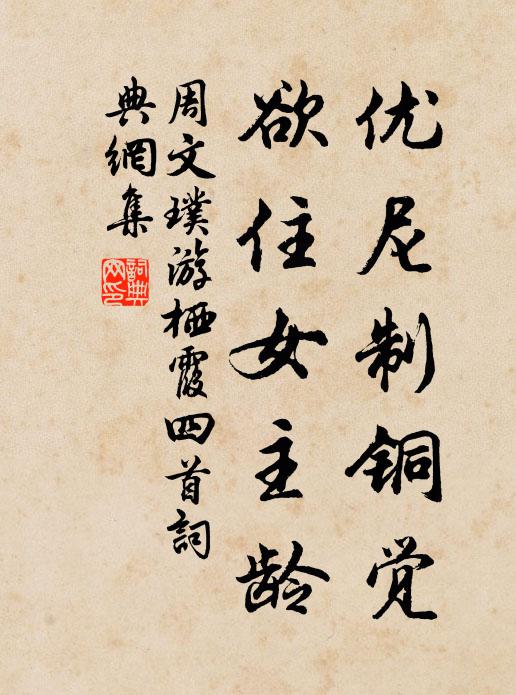 优尼制铜觉
欲住女主龄
周文璞游栖霞四首詞
典網集
詞典网印